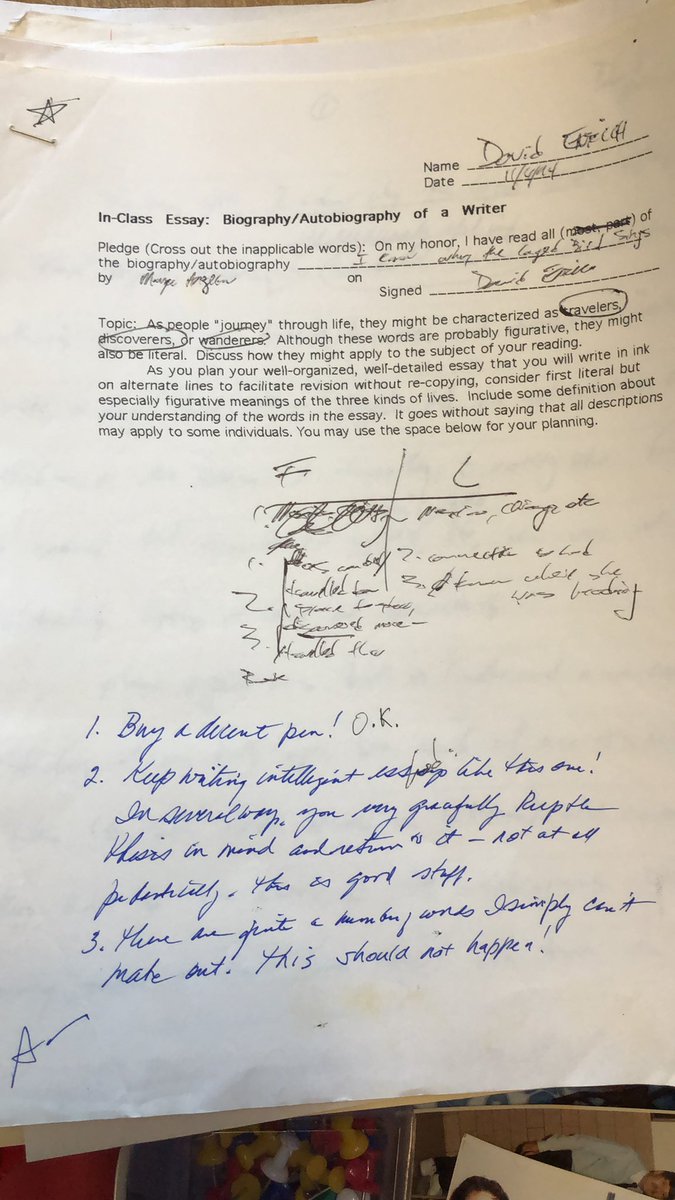 Name David Enrich
Date 11/4/94
In-Class Essay: Biography/Autobiography of a Writer
Pledge (Cross out the inapplicable words): On my honor, I have read all (most, part) of
the biography/autobiography I know why the caged Bird Sings
by Maya Angelou on
Signed David Enrich
Topic: As people "journey" through life, they might be characterized as travelers,
discoverers, or wanderers. Although these words are probably figurative, they might
also be literal. Discuss how they might apply to the subject of your reading.
As you plan your well-organized, well-detailed essay that you will write in ink
on alternate lines to facilitate revision without re-copying, consider first literal but
especially figurative meanings of the three kinds of lives. Include some definition about
your understanding of the words in the essay. It goes without saying that all descriptions
may apply to some individuals. You may use the space below for your planning.
F L
1.
1. 2.
3. know where she
was heading
2.
discovered more
3.
1. Buy a decent pen! O.K.
2. Keep writing intelligent essays like this one!
In several ways, you very gracefully keep the
thesis in mind and return to it - not at all
pedantically. This is good stuff.
3. There are quite a number, words I simply can't
make out. This should not happen!
A-